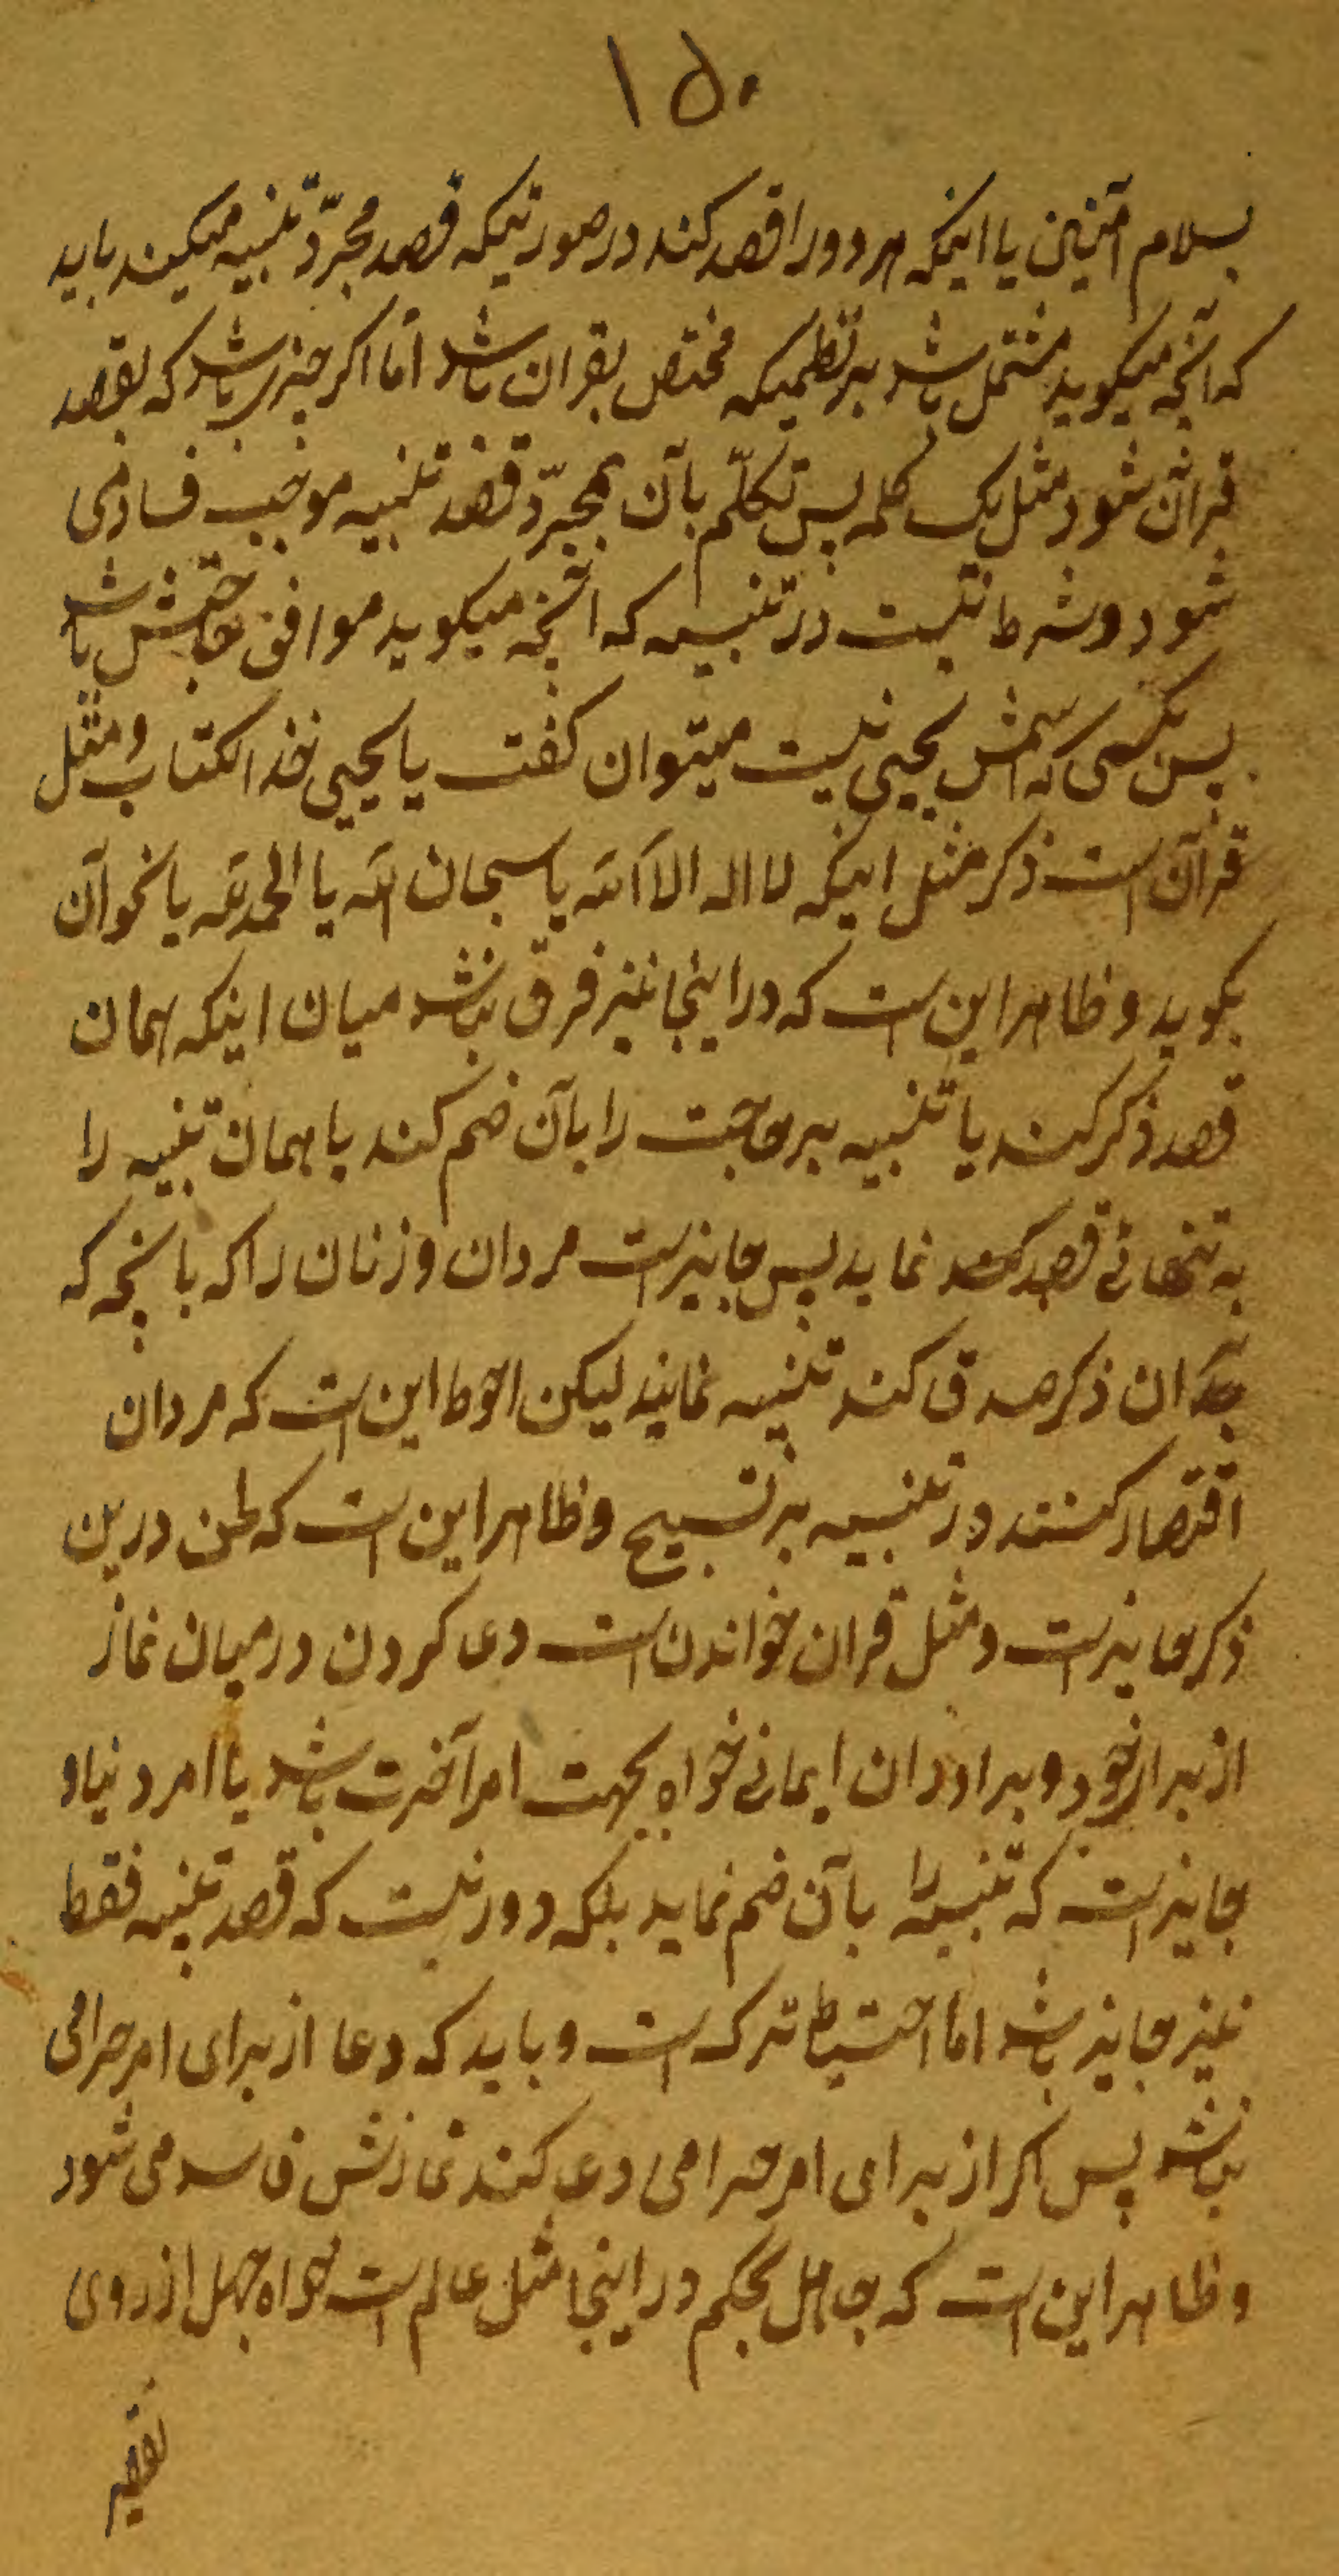 ۱۵۰
بسلام آمنین یا اینکه هر دو را قصد کند در صورتیکه قصد مجرّد تنبیه میکند باید
که آنچه میکوید مشتمل باشد بر نظمیکه مختص بقران باشد امّا اکر چیزی باشد که بقصد
قرآن شود مثل یک کلمه پس تکلّم بآن بمجرّد قصد تنبیه موجب فساد می
شود و شرط نیست در تنبیه که آنچه میکوید موافق حاجتش باشد
پس بکسی که اسمش یحیی نیست میتوان کفت یا یحیی خذ الکتاب و مثل
قرآن است ذکر مثل اینکه لا اله الا الله یا سبحان الله یا الحمد لله یا نحو آن
بکوید و ظاهر این است که در اینجا نیز فرق نباشد میان اینکه همان
قصد ذکر کند یا تنبیه بر حاجت را بآن ضم کند یا همان تنبیه را
به تنهائی قصد نماید پس جایز است مردان و زنان را که بآنچه که
بر آن ذکر صدق کند تنبیه نمایند لیکن احوط این است که مردان
اقتصار کنند در تنبیه بر تسبیح و ظاهر این است که لحن درین
ذکر جایز است و مثل قران خواندن است دعا کردن در میان نماز
از برای خود و برادران ایمانی خواه بجهت امر آخرت باشد یا امر دنیا و
جایز است که تنبیه را بآن ضم نماید بلکه دور نیست که قصد تنبیه فقط
نیز جایز باشد اما احتیاط ترک است و باید که دعا از برای امر حرامی
نباشد پس اکر از برای امر حرامی دعا کند نمازش فاسد می شود
و ظاهر این است که جاهل بحکم در اینجا مثل عالم است خواه جهل از روی
تقصیر